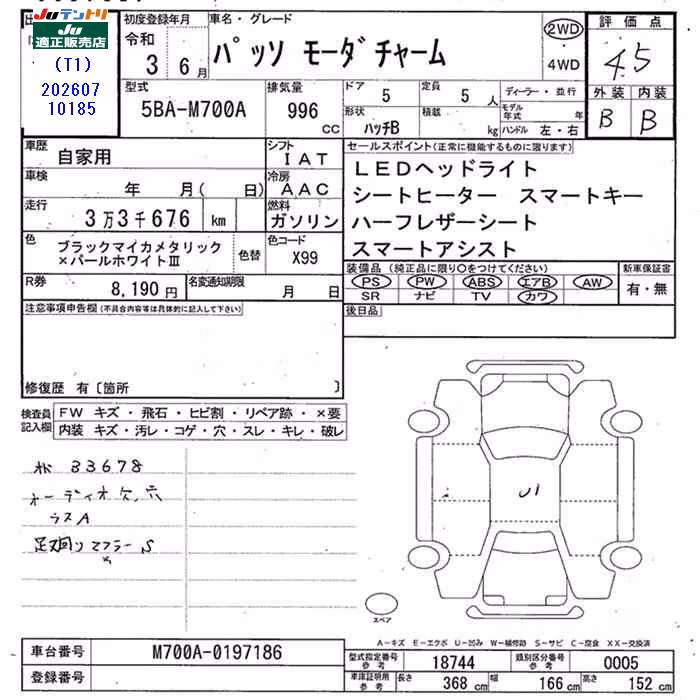 Juテントリ
Ju
適正販売店
(T1)
202607
10185
初度登録年月
令和
3 6月
車名・グレード
パッソ モーダチャーム
2WD
・
4WD
評価点
4.5
外装 内装
B B
型式
5BA-M700A
排気量
996
cc
ドア
5
定員
5 人
形状
ハッチB
積載
kg
ディーラー・並行
モデル年式 年
ハンドル 左・右
車歴
自家用
シフト
IAT
車検
年 月( 日)
冷房
AAC
走行
3万3千676 km
燃料
ガソリン
色
ブラックマイカメタリック
×パールホワイトⅢ
色替
色コード
X99
R券
8,190 円
名変通知期限
月 日
セールスポイント(正常に機能するものに限ります)
LEDヘッドライト
シートヒーター スマートキー
ハーフレザーシート
スマートアシスト
装備品(純正品に限り○をつけてください)
PS PW ABS エアB AW
SR ナビ TV カワ
新車保証書
有・無
後日品
注意事項申告欄(不具合内容等は具体的に記入して下さい)
修復歴 有〔箇所 〕
検査員
記入欄
FW キズ・飛石・ヒビ割・リペア跡・×要
内装 キズ・汚レ・コゲ・穴・スレ・キレ・破レ
33678
オーディオ欠、穴
ラスA
足廻りマフラーS
U1
スペア
A-キズ E-エクボ U-凹み W-補修跡 S-サビ C-腐食 XX-交換済
車台番号
M700A-0197186
登録番号
型式指定番号
参考
18744
類別区分番号
参考
0005
車庫証明用
参考
長さ
368 cm
幅
166 cm
高さ
152 cm